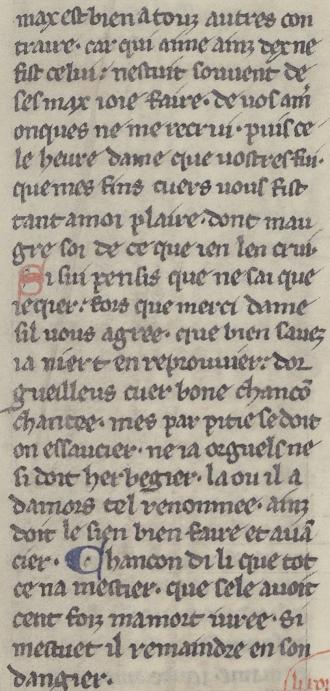 max est bien a touz autres con
traire · car qui aime ainz dex ne
fist celui · nestuit souvent de
ses max ioie faire · de vos am̄
onques ne me recrui · puis ce
le heure dame que vostres fui ·
que mes fins cuers vous fist
tant a moi plaire · dont mau
gre soi de ce que ien len crui ·
Si sui pensis que ne sai que
ie quier · fors que merci dame
sil vous agree · que bien savez
ia niert en reprouvier · dor
gueilleus cuer bone chancō
chantee · mes par pitie se doit
on essaucier · ne ia orguels ne
si doit herbegier · la ou il a
damors tel renommee · ainz
doit le sien bien faire et auā
cier · Chancon di li que tot
ce na mestier · que sele avoit
cent foiz mamort iuree · Si
mestuet il remaindre en son
dangier ·